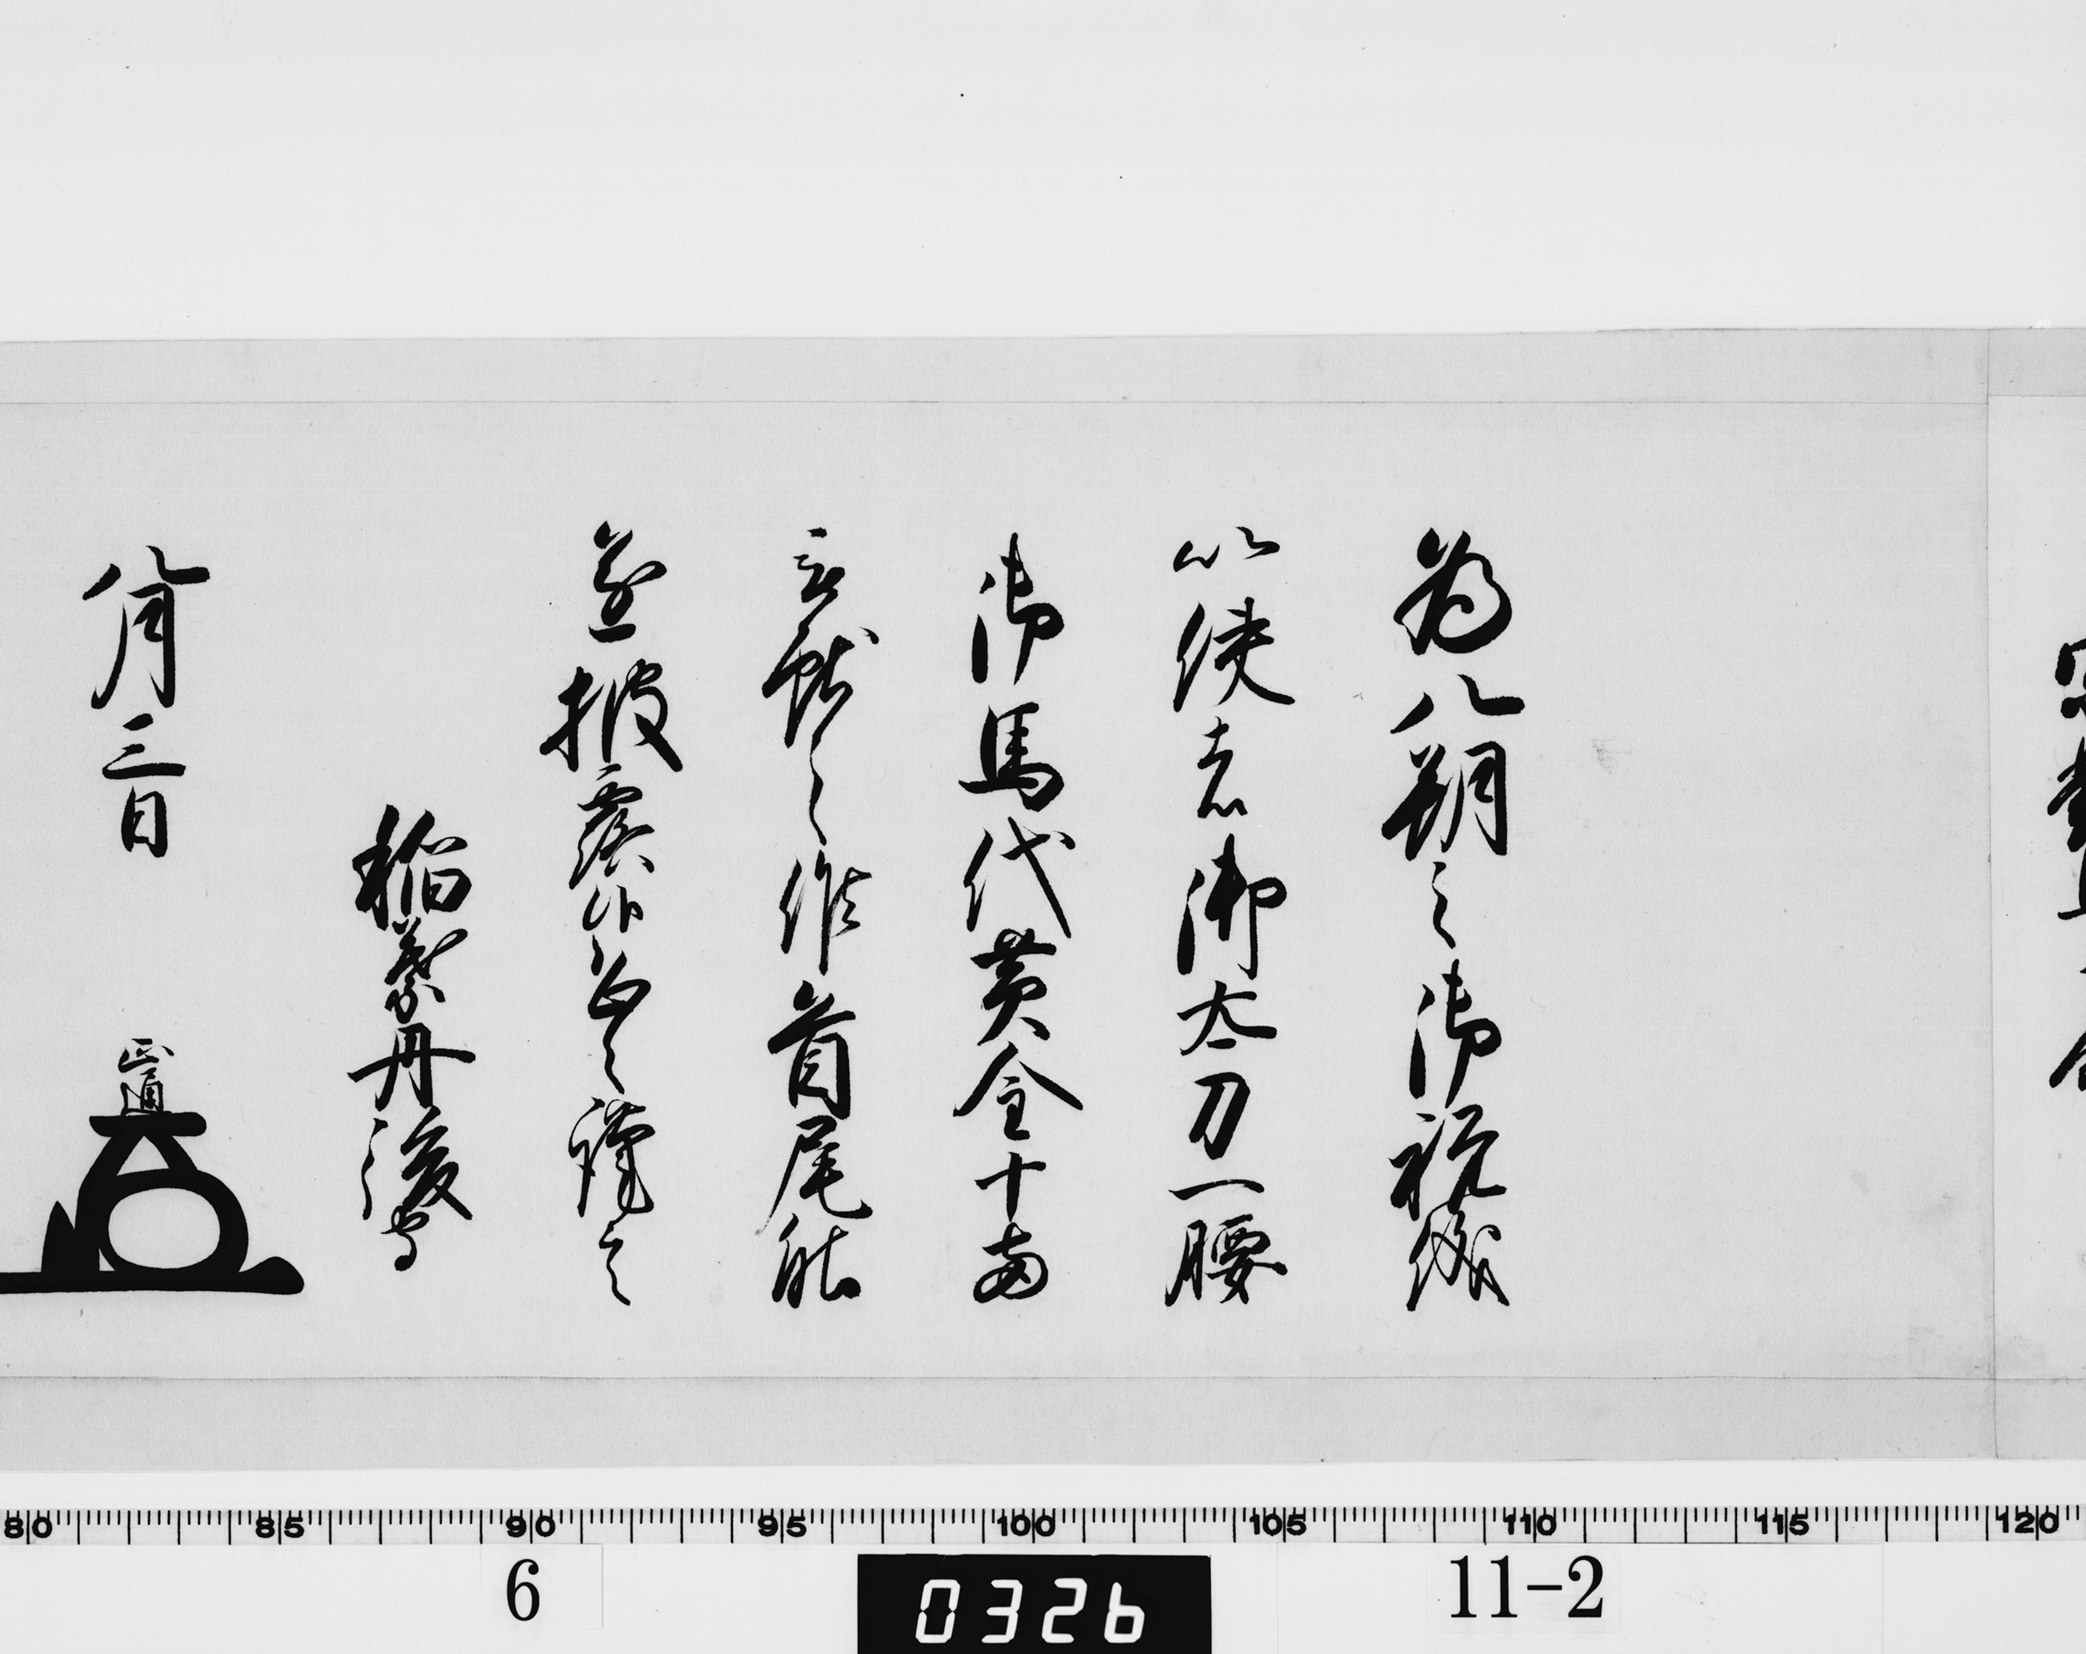 為八朔之御祝儀
以使者御太刀一腰
御馬代黄金十両
被献之候首尾能
遂披露候恐々謹言
稲葉丹後守
八月三日
正通
80 85 90 95 100 105 110 115 120
6
0326
11-2